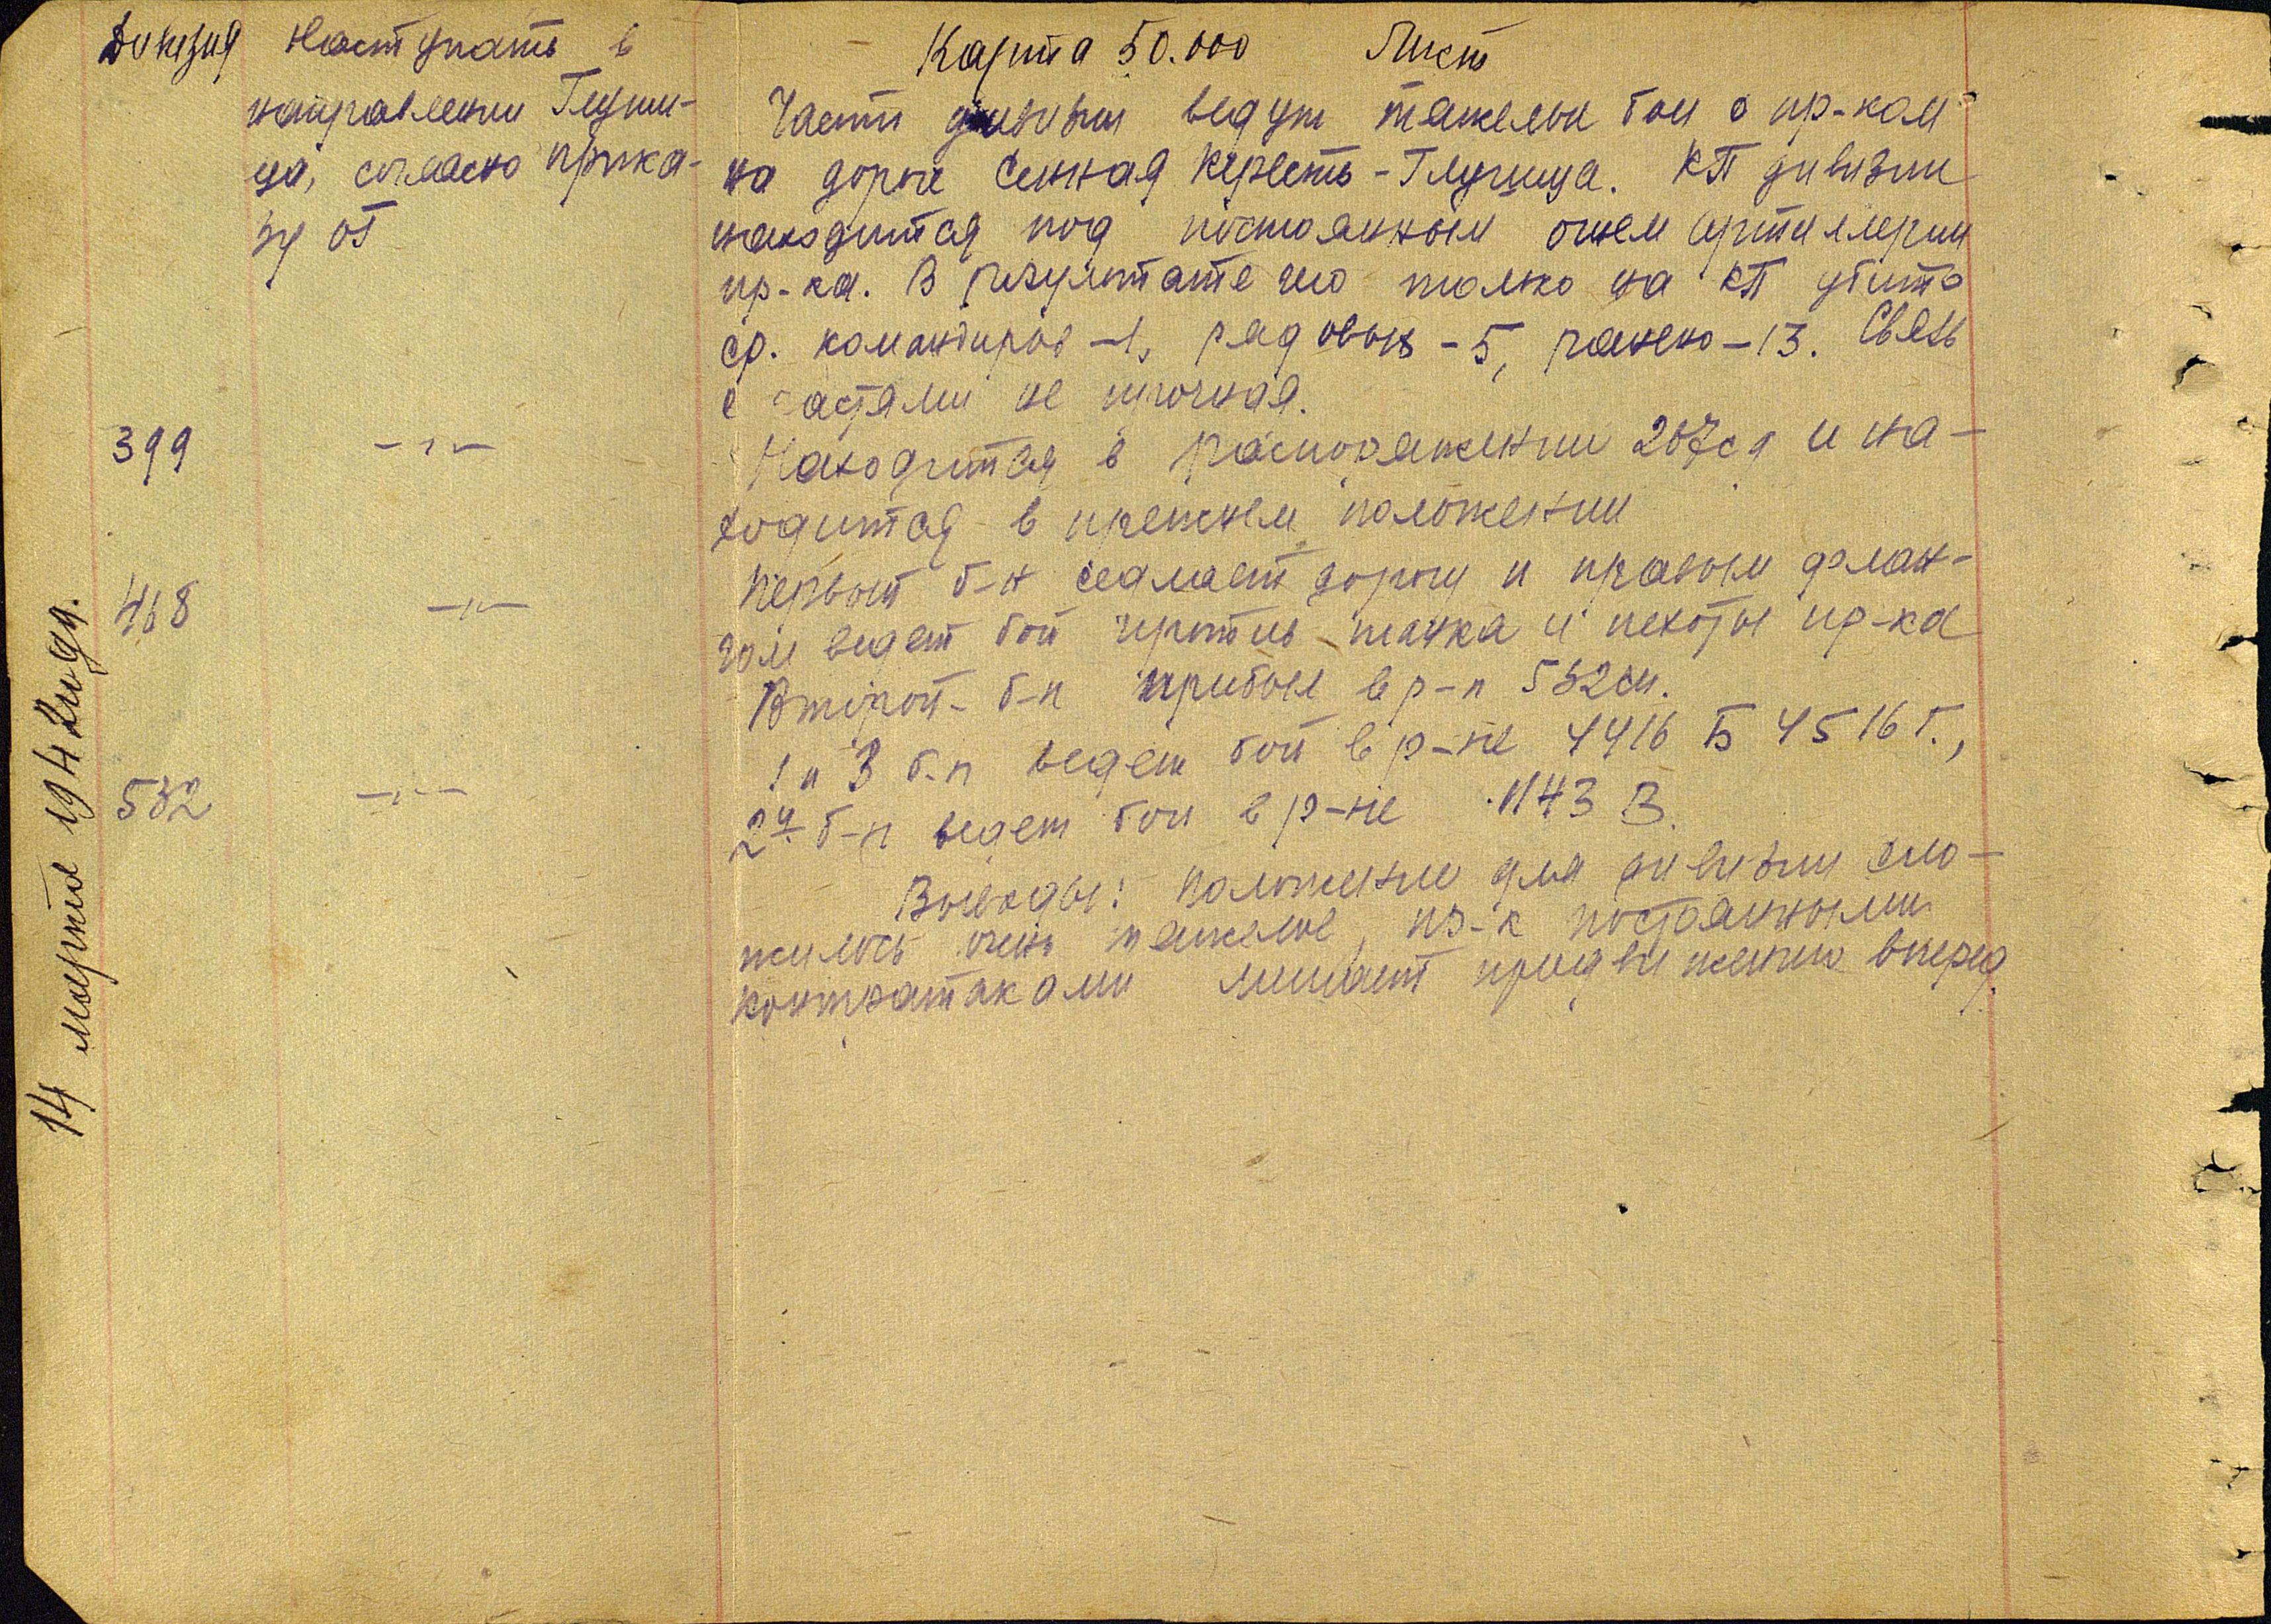 14 марта 1942 года.
Дивизия
Наступать в
направлении Глуши-
ца, согласно прика-
зу от
Карта 50.000 Лист
Части дивизии ведут тяжелые бои с пр-ком
на дороге Сенная Кересть - Глушица. КП дивизии
находится под постоянным огнем артиллерии
пр-ка. В результате его только на КП убито
ср. командиров - 1, рядовых - 5, ранено - 13. Связь
с частями не прочная.
399 — " —
Находится в распоряжении 267сд и на-
ходится в прежнем положении
468 — " —
Первый б-н седлает дорогу и правым флан-
гом ведет бой против танка и пехоты пр-ка
Второй - б-н прибыл в р-н 532сп.
532 — " —
1 и 3 б-н ведет бой в р-не 4416 Б 4516 Г.,
2й б-н ведет бой в р-не 1143 В.
Выводы: положение для дивизии сло-
жилось очень тяжелое, пр-к постоянными
контратаками мешает продвижению вперед